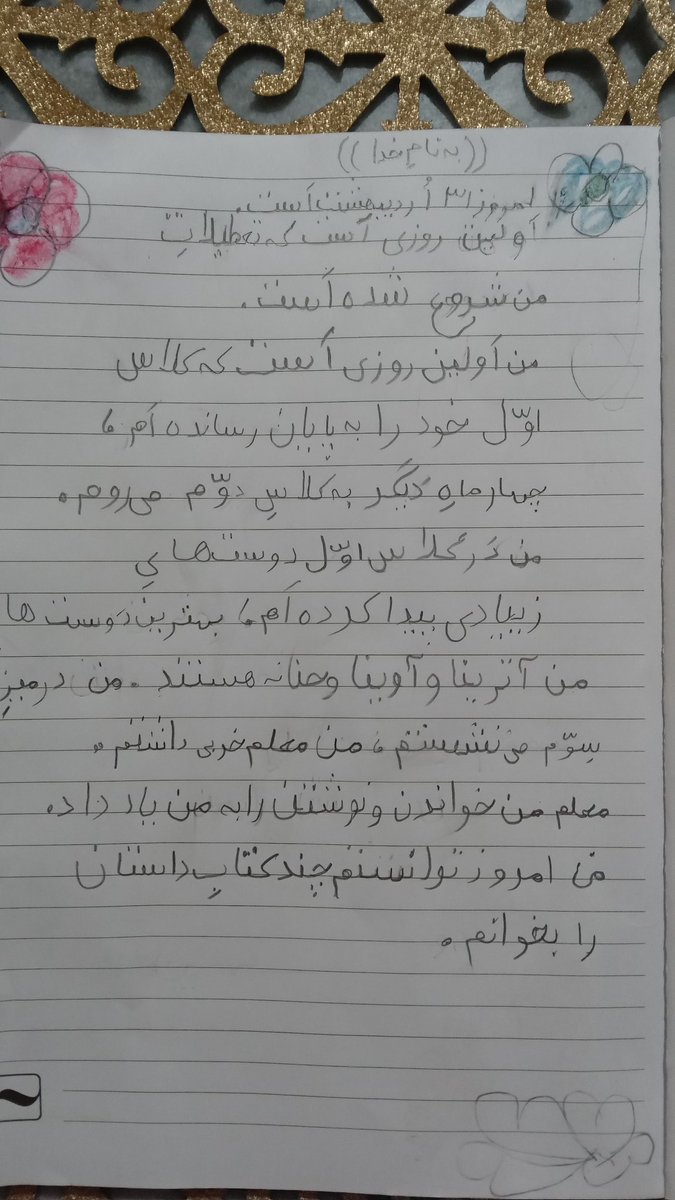 ((به نامِ خدا))
امروز ۳۱ اُردیبهشت اَست.
اَولین روزی اَست که تعطیلاتِ
من شروع شده اَست.
من اَولین روزی اَست که کلاس
اوّل خود را به پایان رسانده اَم.
چهار ماهِ دیگر به کلاسِ دوّم می‌روم.
من دَر کلاس اوّل دوست‌هایِ
زیادی پیدا کرده اَم. بهترین دوست ها
من آترینا و آوینا و حنانه هستند. من در میزِ
سوّم می‌نشستم. من معلم خوبی داشتم.
معلم من خواندن و نوشتن را به من یاد داد.
من امروز توانستم چند کتابِ داستان
را بخوانم.